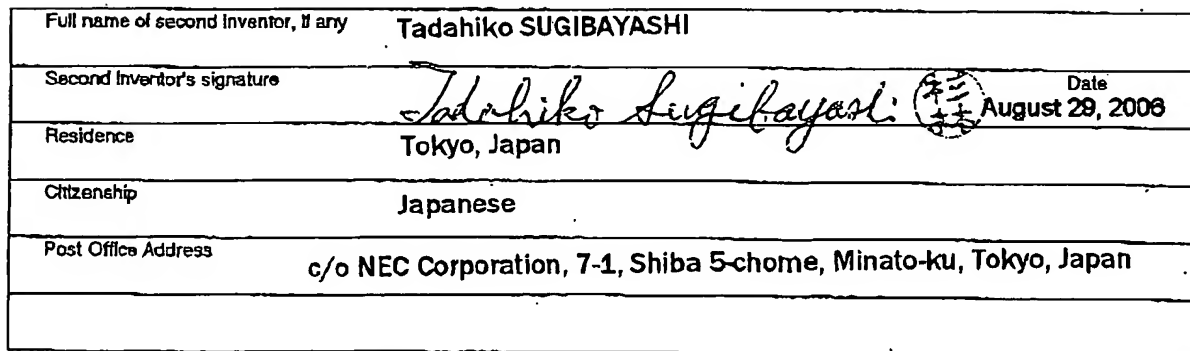 Full name of second inventor, if any Tadahiko SUGIBAYASHI
Second Inventor's signature Tadahiko Sugibayashi Date
August 29, 2006
Residence Tokyo, Japan
Citizenship Japanese
Post Office Address c/o NEC Corporation, 7-1, Shiba 5-chome, Minato-ku, Tokyo, Japan